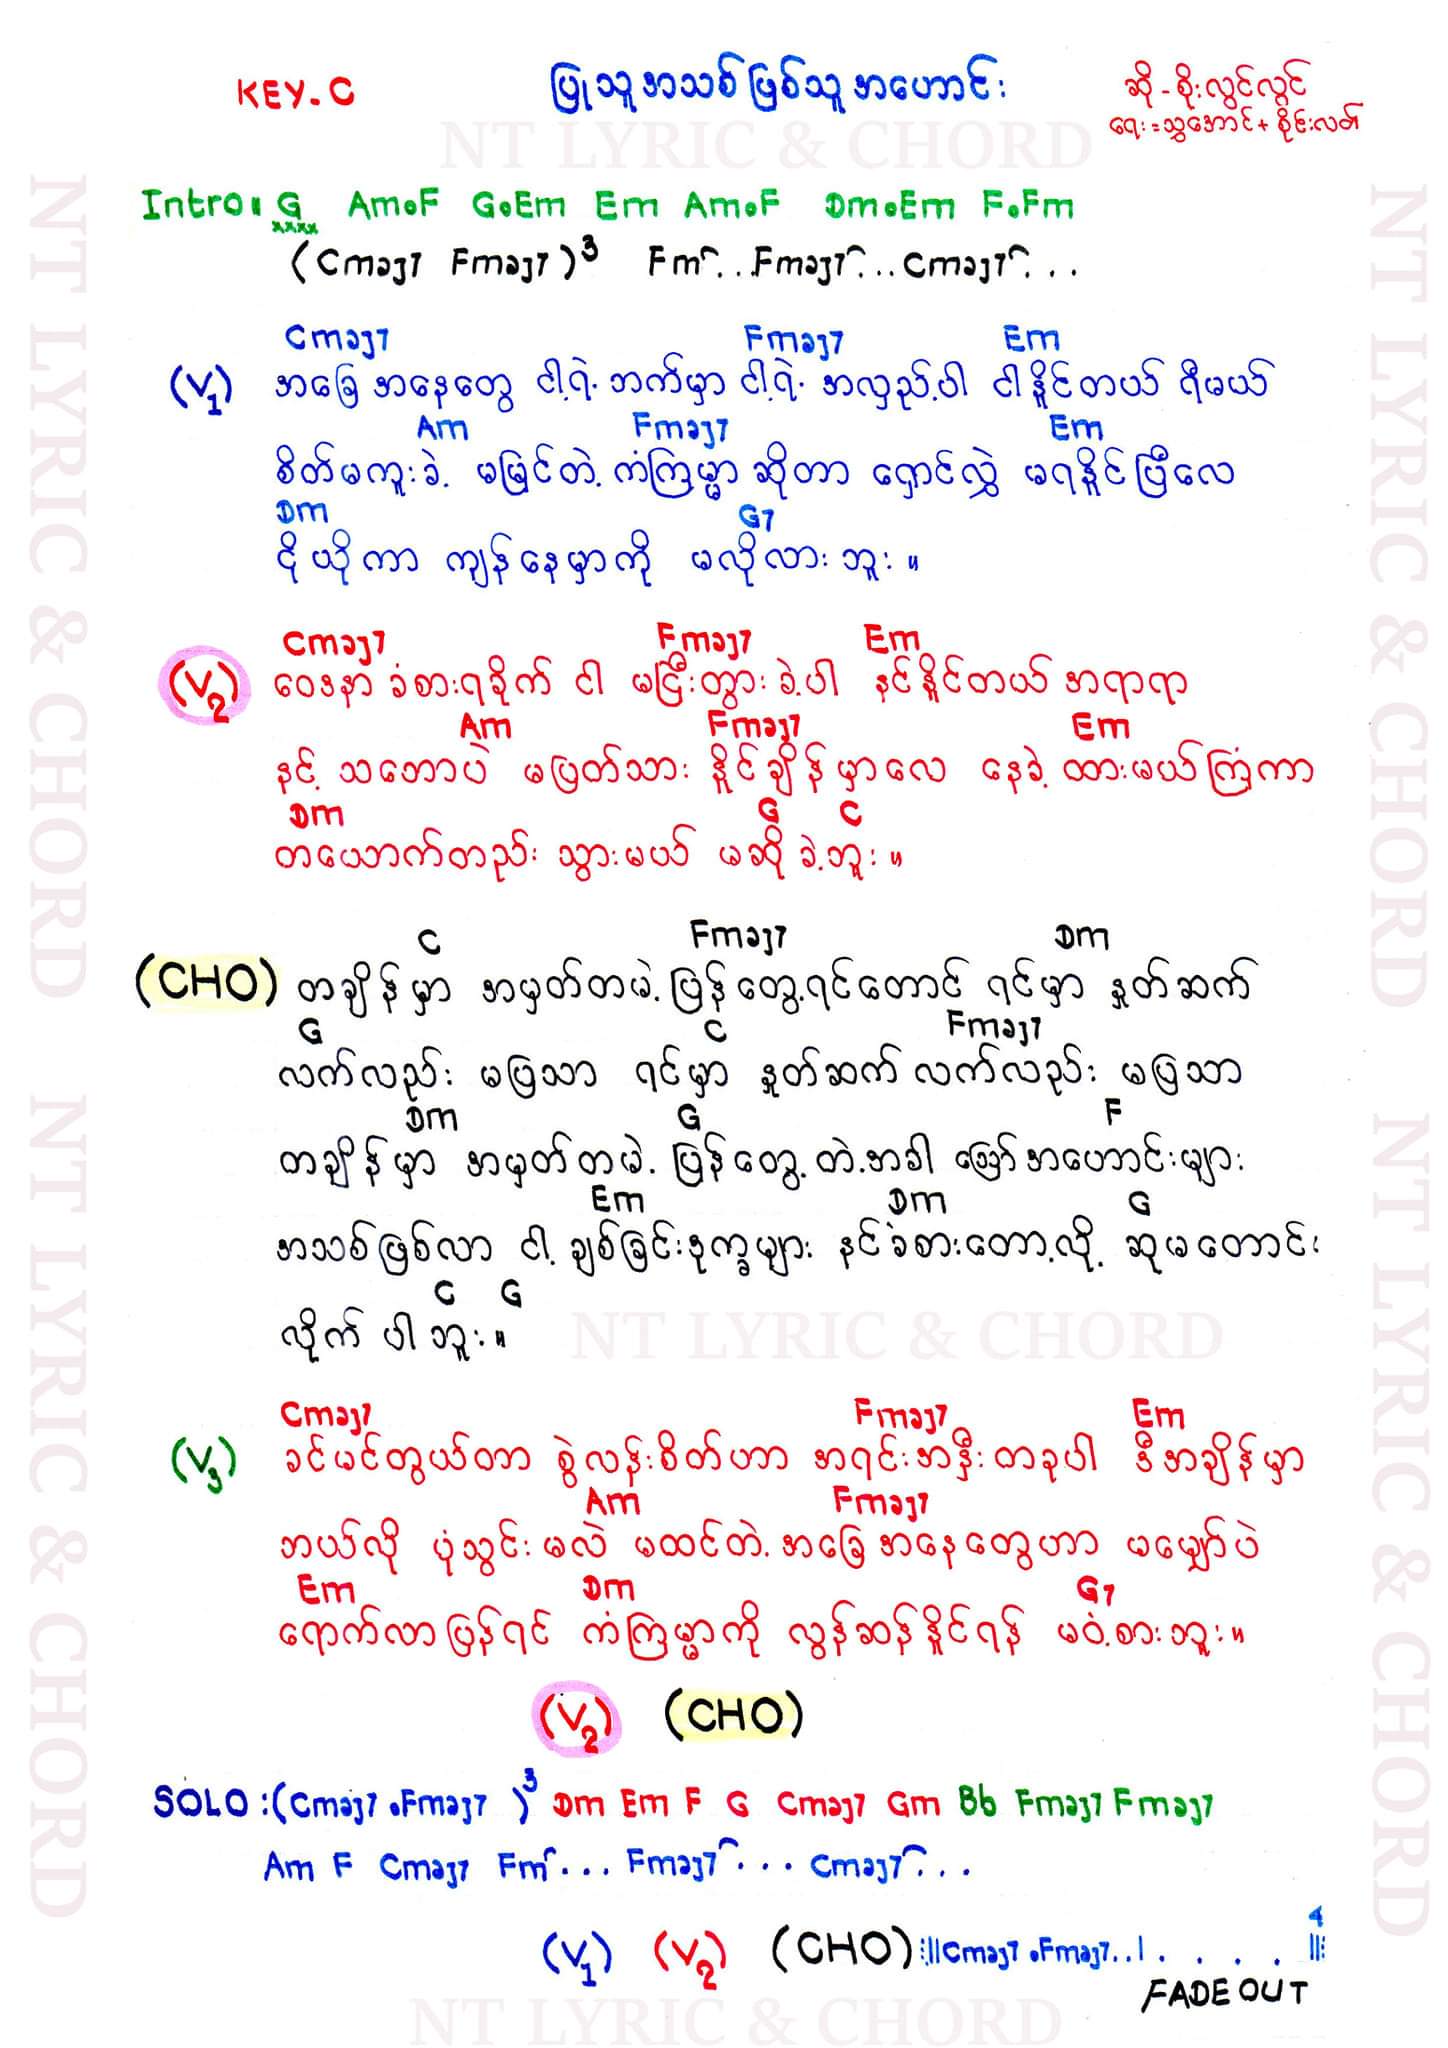 KEY.C
ပြုသူအသစ်ဖြစ်သူအဟောင်း
ဆို - စိုးလွင်လွင်
ရေး = သွှအောင် + စိုင်းလတ်
NT LYRIC & CHORD
Intro: G Am.F G.Em Em Am.F Dm.Em F.Fm
xxxx
(Cmaj7 Fmaj7)3 Fm...Fmaj7...Cmaj7...
Cmaj7 Fmaj7 Em
(V1) အခြေအနေတွေ ငါ့ရဲ့ဘက်မှာ ငါ့ရဲ့ အလှည့်ပါ ငါနိုင်တယ် ရီမယ်
Am Fmaj7 Em
စိတ်မကူးခဲ့ မမြင်တဲ့ကံကြမ္မာဆိုတာ ရှောင်လွှဲ မရနိုင်ပြီလေ
Dm G7
ငိုယိုကာ ကျန်နေမှာကို မလိုလားဘူး။
Cmaj7 Fmaj7 Em
(V2) ဝေဒနာ ခံစားရခိုက် ငါ မငြီးတွားခဲ့ပါ နင်နိုင်တယ် အရာရာ
Am Fmaj7 Em
နင့် သဘောပဲ မပြတ်သား နိုင်ချိန်မှာလေ နေခဲ့ ထားမယ်ကြံကာ
Dm G C
တယောက်တည်း သွားမယ် မဆိုခဲ့ဘူး။
C Fmaj7 Dm
(CHO) တချိန်မှာ အမှတ်တမဲ့ ပြန်တွေ့ရင်တောင် ရင်မှာ နှုတ်ဆက်
G C Fmaj7
လက်လည်း မပြသာ ရင်မှာ နှုတ်ဆက်လက်လည်း မပြသာ
Dm G F
တချိန်မှာ အမှတ်တမဲ့ ပြန်တွေ့တဲ့အခါ ဪအဟောင်းများ
Em Dm G
အသစ်ဖြစ်လာ ငါ့ချစ်ခြင်းဒုက္ခများ နင်ခံစားတော့လို့ ဆုမတောင်း
C G
လိုက်ပါဘူး။
NT LYRIC & CHORD
Cmaj7 Fmaj7 Em
(V3) ခင်မင်တွယ်တာ စွဲလန်းစိတ်ဟာ အရင်းအနှီးတခုပါ ဒီအချိန်မှာ
Am Fmaj7
ဘယ်လို ပုံသွင်းမလဲ မထင်တဲ့အခြေအနေတွေဟာ မမျှော်ပဲ
Em Dm G7
ရောက်လာပြန်ရင် ကံကြမ္မာကို လွန်ဆန်နိုင်ရန် မဝံ့စားဘူး။
(V2) (CHO)
SOLO :(Cmaj7 .Fmaj7 )3 Dm Em F G Cmaj7 Gm Bb Fmaj7 Fmaj7
Am F Cmaj7 Fm... Fmaj7... Cmaj7...
(V1) (V2) (CHO) :||Cmaj7 .Fmaj7..| . . . . ||: 4
FADE OUT
NT LYRIC & CHORD
NT LYRIC & CHORD
NT LYRIC & CHORD
NT LYRIC & CHORD
NT LYRIC & CHORD